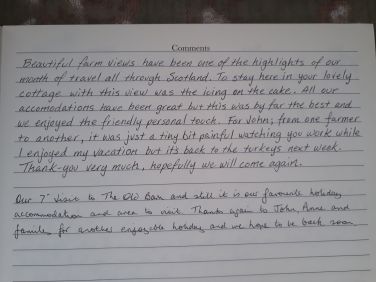 Comments
Beautiful farm views have been one of the highlights of our
month of travel all through Scotland. To stay here in your lovely
cottage with this view was the icing on the cake. All our
accomodations have been great but this was by far the best and
we enjoyed the friendly personal touch. For John; from one farmer
to another, it was just a tiny bit painful watching you work while
I enjoyed my vacation but its back to the turkeys next week.
Thank-you very much, hopefully we will come again.
Our 7th visit to The Old Barn and still it is our favourite holiday
accommodation and area to visit. Thanks again to John, Anne and
family for another enjoyable holiday and we hope to be back soon